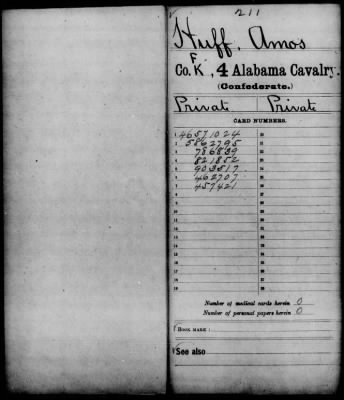 211
Huff, Amos
F
Co. K, 4 Alabama Cavalry.
(Confederate.)
Private Private
CARD NUMBERS.
1 46571024 20
2 5862795 21
3 786839 22
4 821852 23
5 903517 24
6 462707 25
7 457421 26
8 27
9 28
10 29
11 30
12 31
13 32
14 33
15 34
16 35
17 36
18 37
19 38
Number of medical cards herein 0
Number of personal papers herein 0
BOOK MARK:
See also